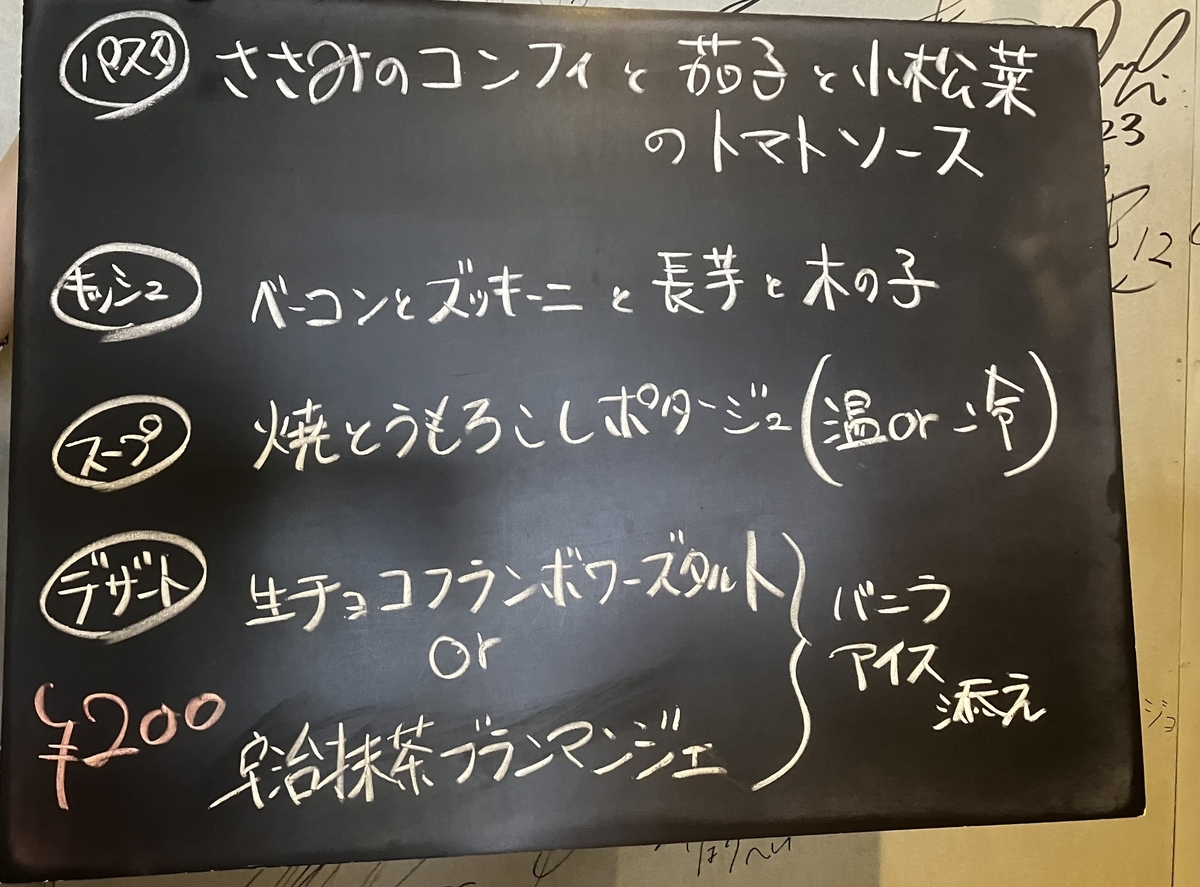 パスタ ささみのコンフィと茄子と小松菜
のトマトソース
キッシュ ベーコンとズッキーニと長芋と木の子
スープ 焼とうもろこしポタージュ(温or冷)
デザート 生チョコフランボワーズタルト
or
宇治抹茶ブランマンジェ
バニラ
アイス
添え
¥200
23
12
ジョ